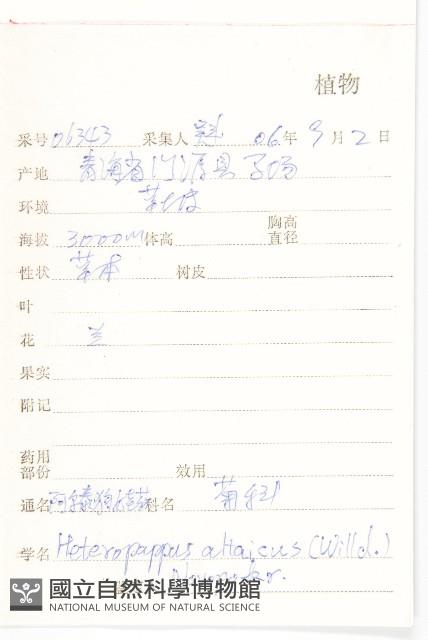 植物
采号 06343 采集人 06年 9月2日
产地 青海省门源县
环境 草坡
海拔 3000m 体高 胸高直径
性状 草本 树皮
叶
花 兰
果实
附记
药用部份 效用
通名 阿尔泰狗娃花 科名 菊科
学名 Heteropappus altaicus (Willd.)
Novopokr.
國立自然科學博物館
NATIONAL MUSEUM OF NATURAL SCIENCE